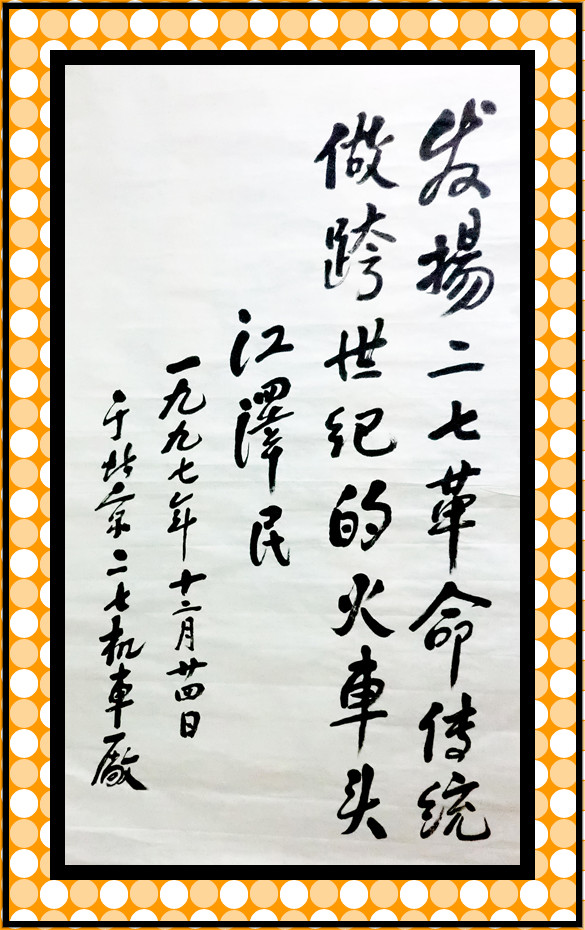 发揚二七革命传统
做跨世纪的火車头
江澤民
一九九七年十二月廿四日
于北京二七机車厰